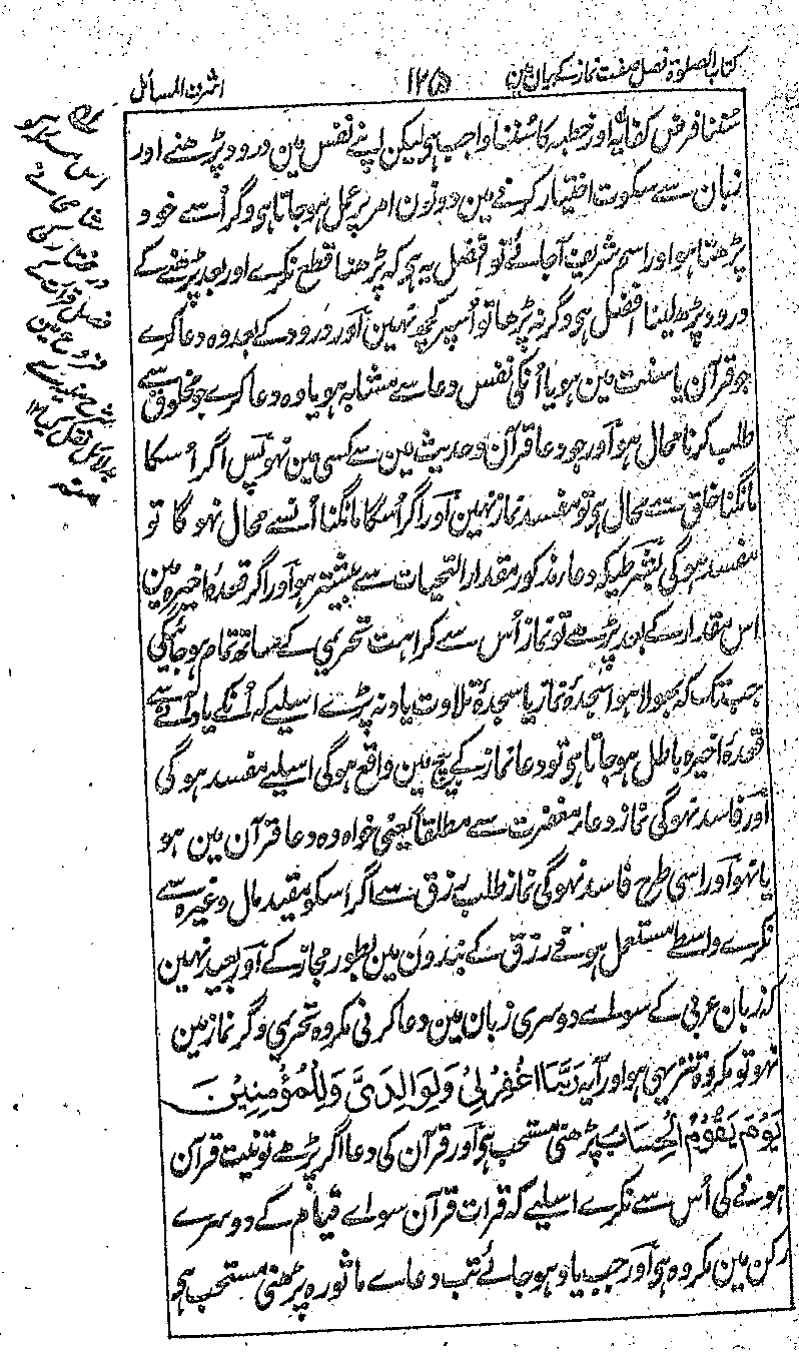 کتاب الصلوة فصل صفت نماز کے بیان مین
۱۲۵
اشرف المسائل
سُننا فرض کفایہ اور خطبہ کا سُننا واجب ہی لیکن اپنے نفس مین درود پڑھنے اور
زبان سے سکوت اختیار کرنے مین دونون امر پر عمل ہو جاتا ہی وگر اُسے خود
پڑھتا ہو اور اسم شریف آجائے تو افضل یہ ہی کہ پڑھنا قطع نکرے اور بعد پڑھنے کے
درود پڑھ لینا افضل ہی وگر نہ پڑھا تو اُسپر کچھ نہین آور درود کے بعد وہ دعا کرے
جو قرآن یا سنت مین ہو یا اُنکی نفس دعا سے مشابہ ہو یا وہ دعا کرے جو مخلوق سے
طلب کرنا محال ہو آور جو دعا قرآن و حدیث مین سے کسی مین نہو پس اگر اُسکا
مانگنا خلق سے محال ہو تو مفسد نماز نہین آور اگر اُسکا مانگنا اُنسے محال نہو گا تو
مفسد ہو گی بشرطیکہ دعاء مذکور مقدار التحیات سے پیشتر ہو آور اگر قعدۂ اخیرہ مین
اس مقدار کے بعد پڑھے تو نماز اُس سے کراہت تحریمی کے ساتھ تمام ہو جائیگی
جب تک کہ بھولا ہوا سجدۂ نماز یا سجدۂ تلاوت یاد نہ پڑے اسلیے کہ اُنکے یاد آنے سے
قعدۂ اخیرہ باطل ہو جاتا ہی تو دعا نماز کے بیچ مین واقع ہو گی اسلیے مفسد ہو گی
آور فاسد نہو گی نماز دعاء مغفرت سے مطلقاً یعنی خواہ وہ دعا قرآن مین ہو
یا نہو آور اسی طرح فاسد نہو گی نماز طلب رزق سے اگر اسکو مقید مال وغیرہ سے
نکرے واسطے مستعمل ہونے رزق کے بندون مین بطور مجاز کے آور بعید نہین
کہ زبان عربی کے سواے دوسری زبان مین دعا کرنی مکروہ تحریمی وگر نماز مین
نہو تو مکروہ تنزیہی ہو اور آیہ رَبَّنَا اغْفِرْ لِیْ وَلِوَالِدَیَّ وَلِلْمُؤْمِنِیْنَ
یَوْمَ یَقُوْمُ الْحِسَابُ پڑھنی مستحب ہی آور قرآن کی دعا اگر پڑھے تو نیت قرآن
ہونے کی اُس سے نکرے اسلیے کہ قرات قرآن سواے قیام کے دوسرے
رکن مین مکروہ ہی آور جب یاد ہو جائے تب دعاے ماثورہ پڑھنی مستحب ہی
اس مسئلہ کو
شامی نے
در مختار کی
فصل قرات کے
فروع مین
شرح منیہ سے
نقل کیا ۱۲
منہ